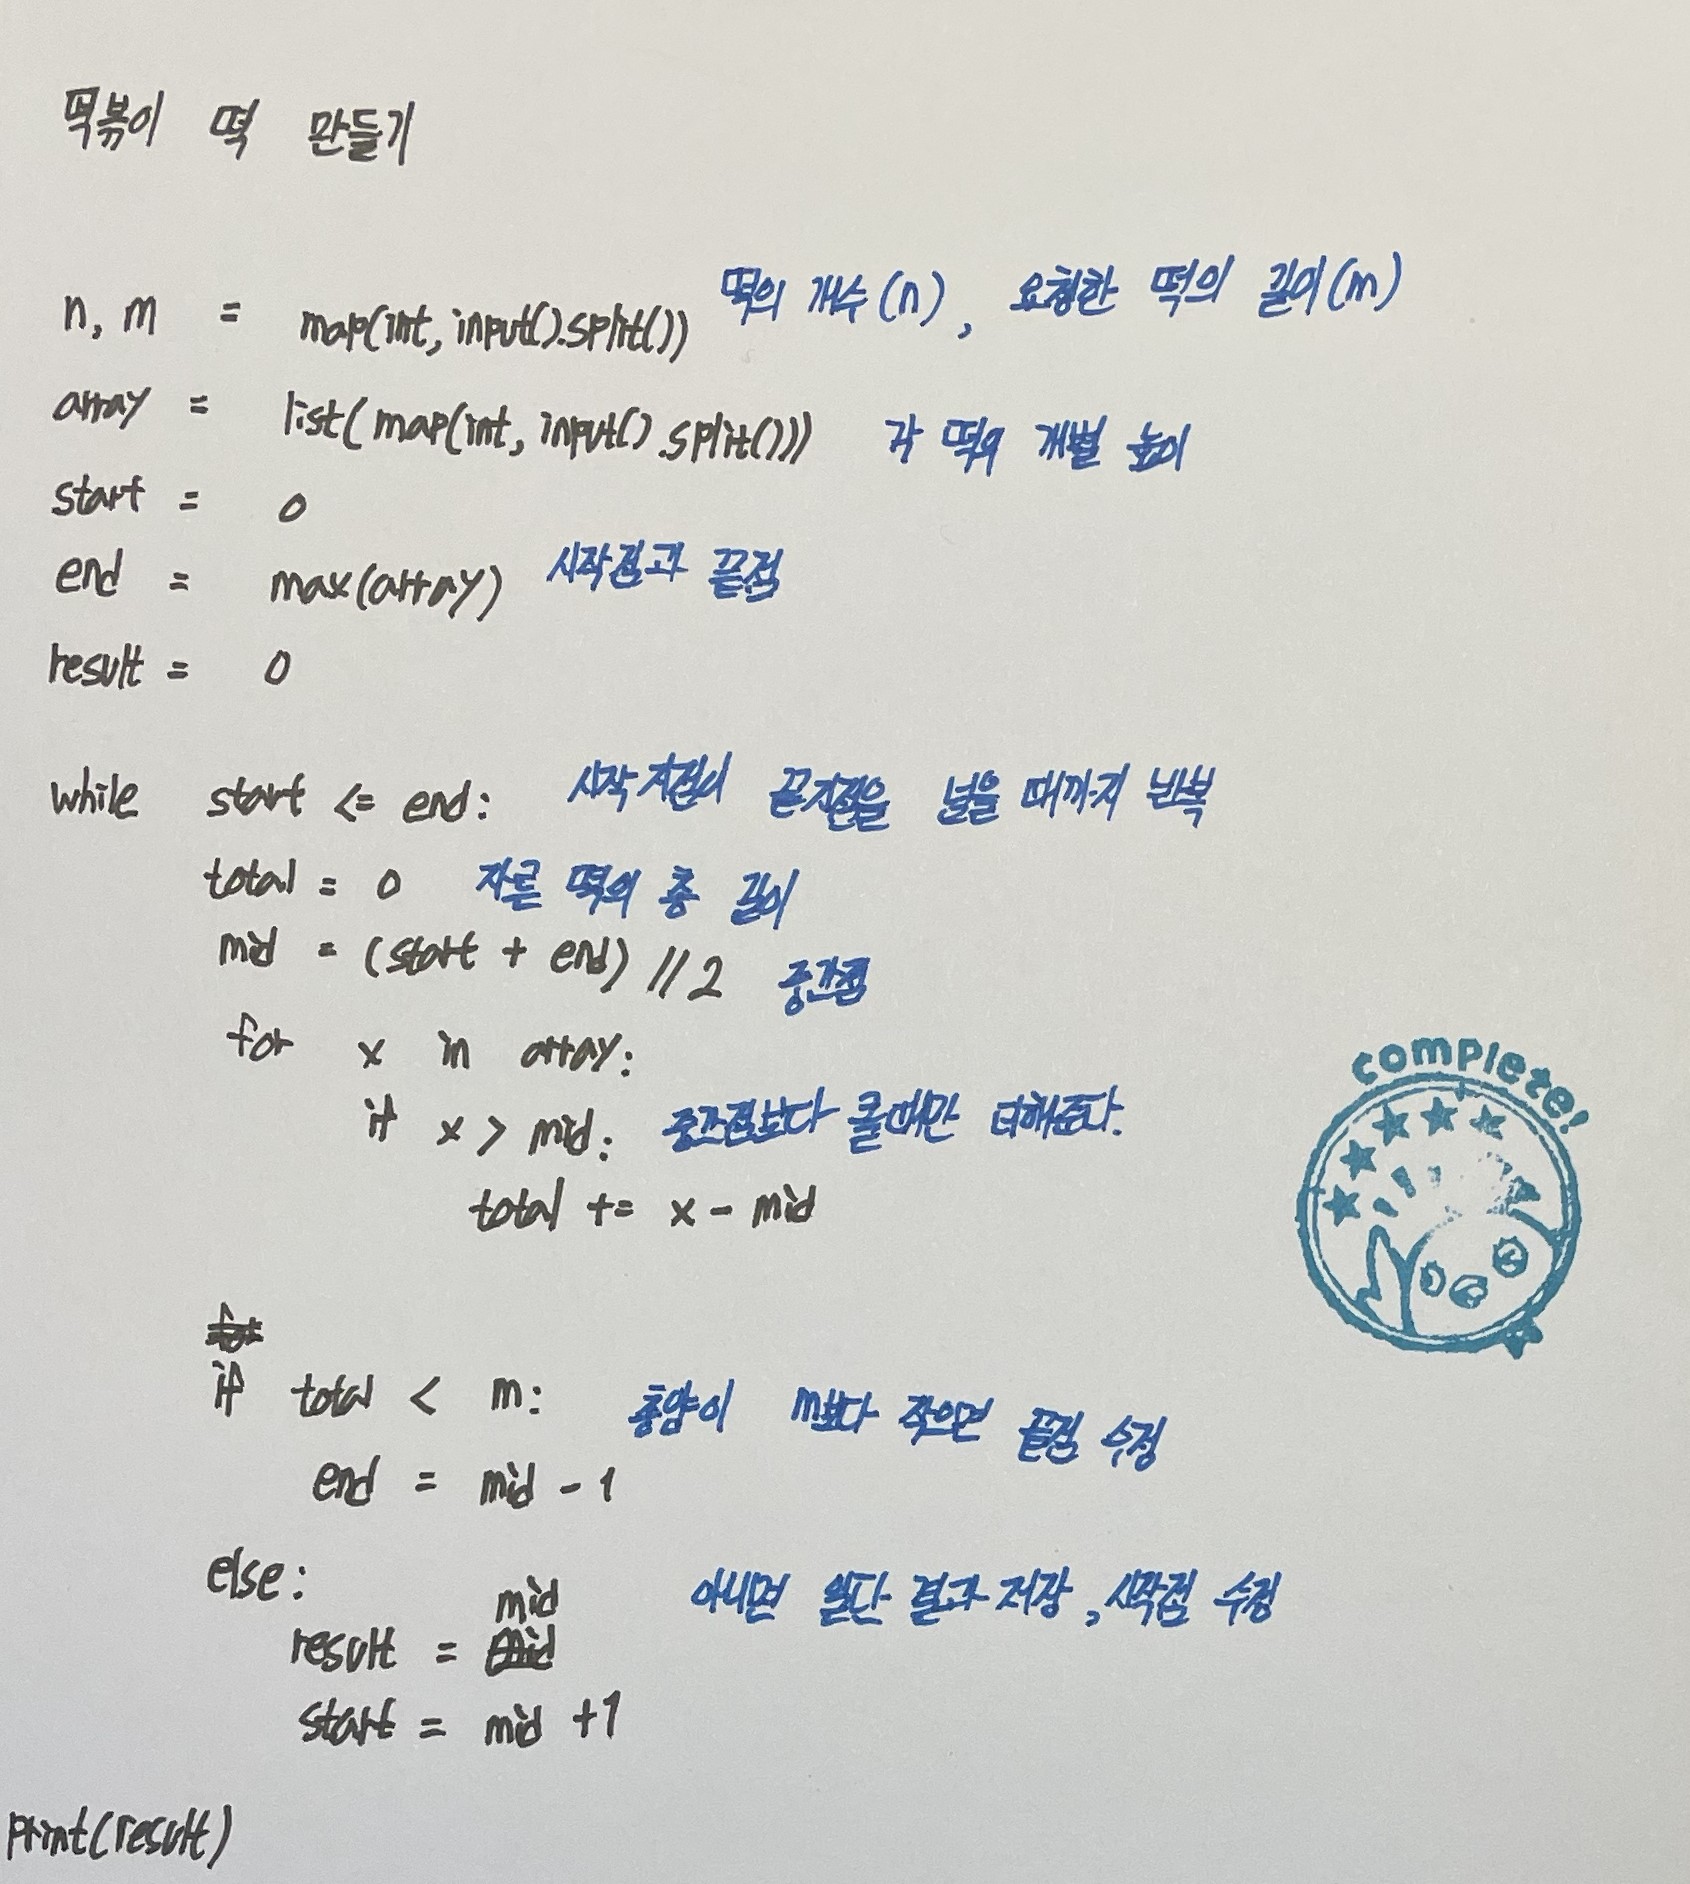 떡볶이 떡 만들기
n, m = map(int, input().split()) 떡의 개수(n), 요청한 떡의 길이(m)
array = list(map(int, input().split())) 각 떡의 개별 높이
start = 0
end = max(array) 시작점과 끝점
result = 0
while start <= end: 시작지점이 끝지점을 넘을 때까지 반복
total = 0 자른 떡의 총 길이
mid = (start + end) // 2 중간점
for x in array:
if x > mid: 중간점보다 클때만 더해준다.
total += x - mid
complete!
if total < m: 총양이 m보다 작으면 끝점 수정
end = mid - 1
else: 아니면 일단 결과 저장, 시작점 수정
result = mid
start = mid +1
print(result)